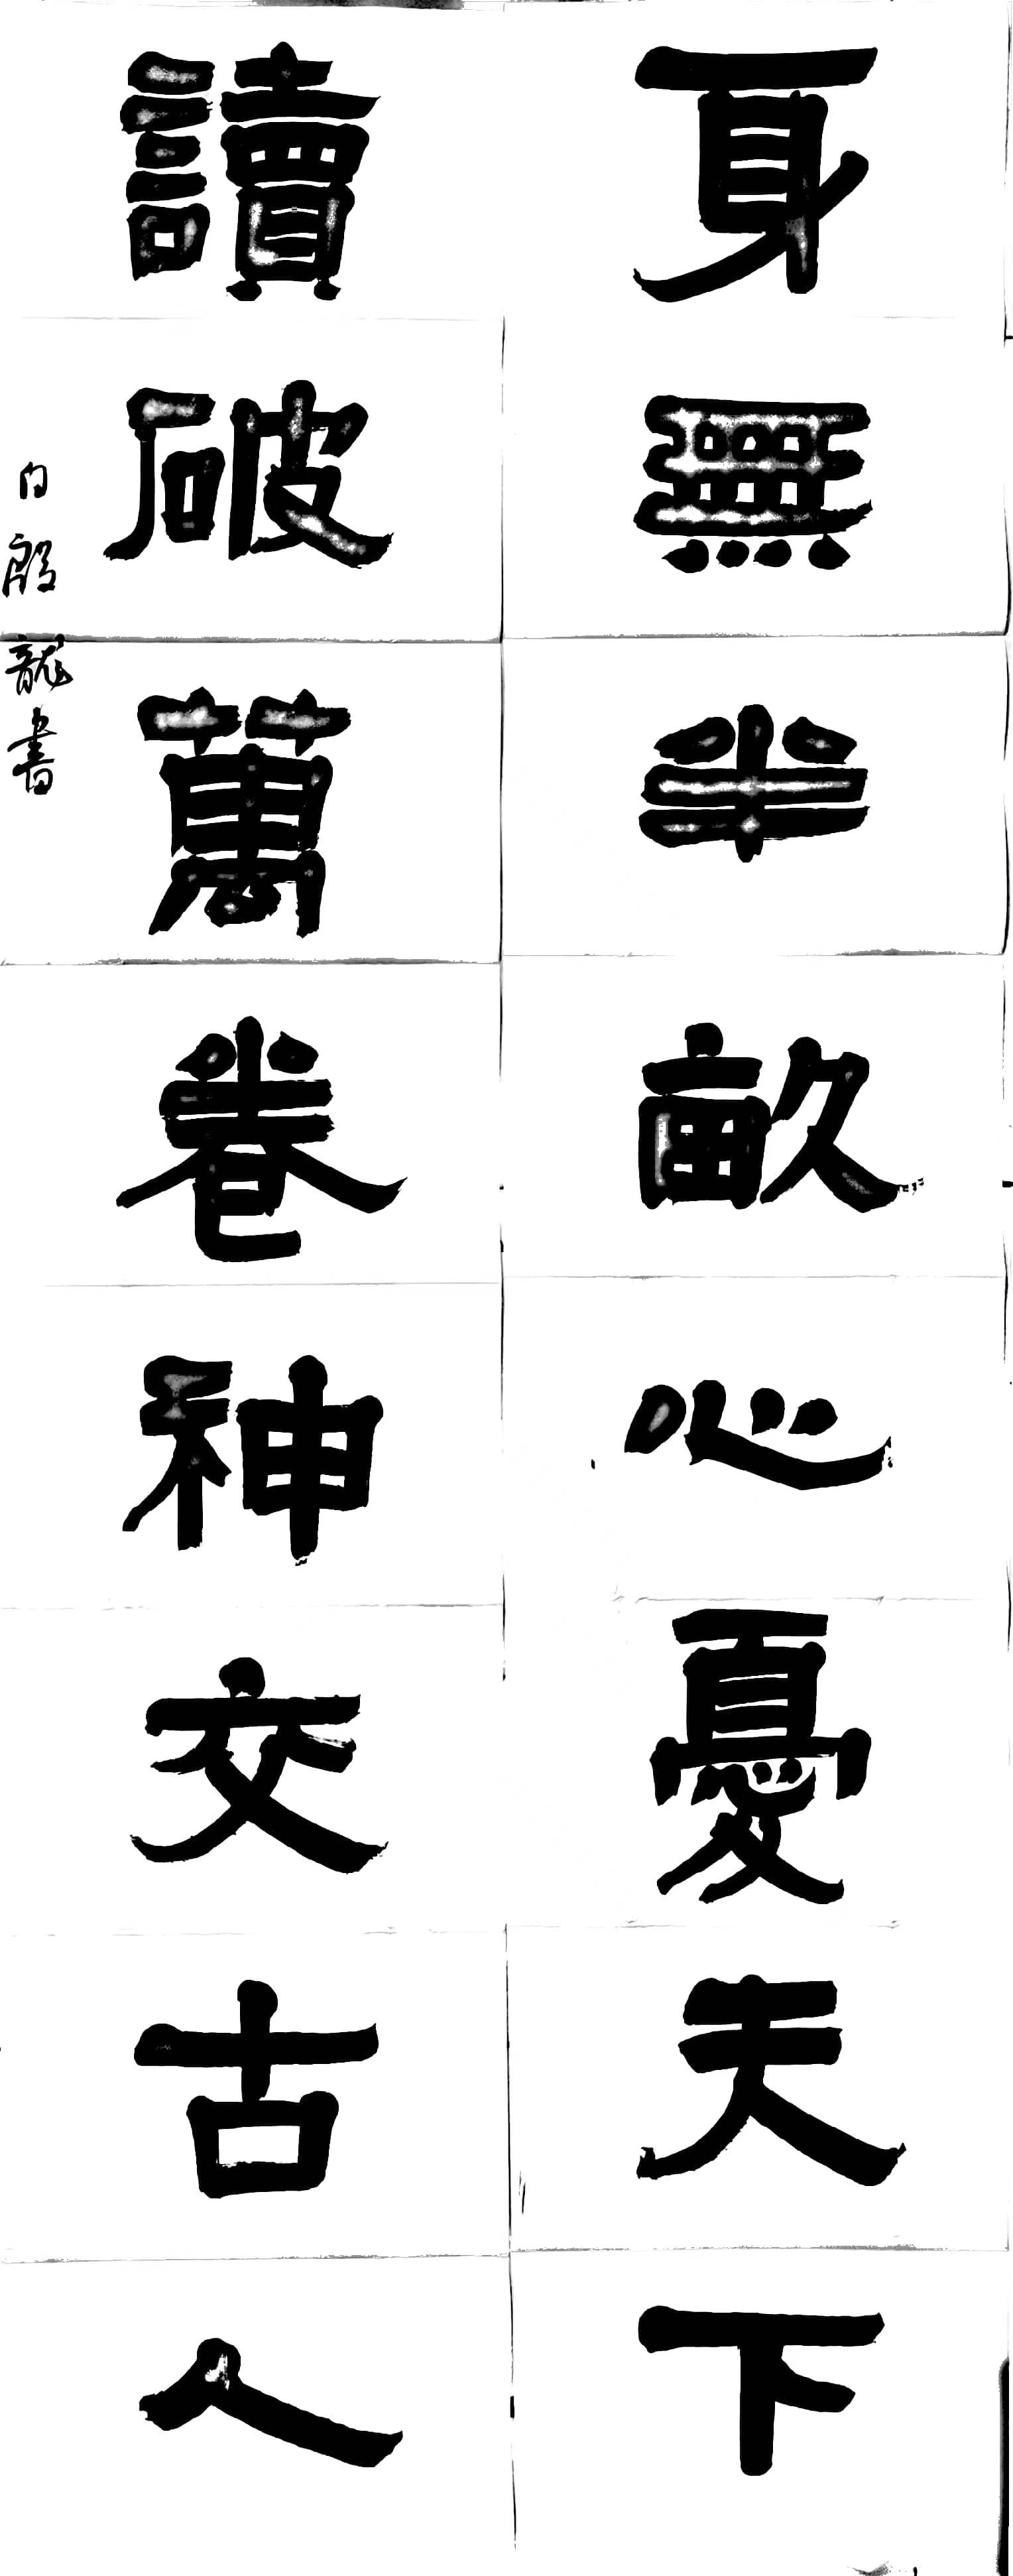 身無半畝心憂天下
讀破萬卷神交古人
白殿龍書